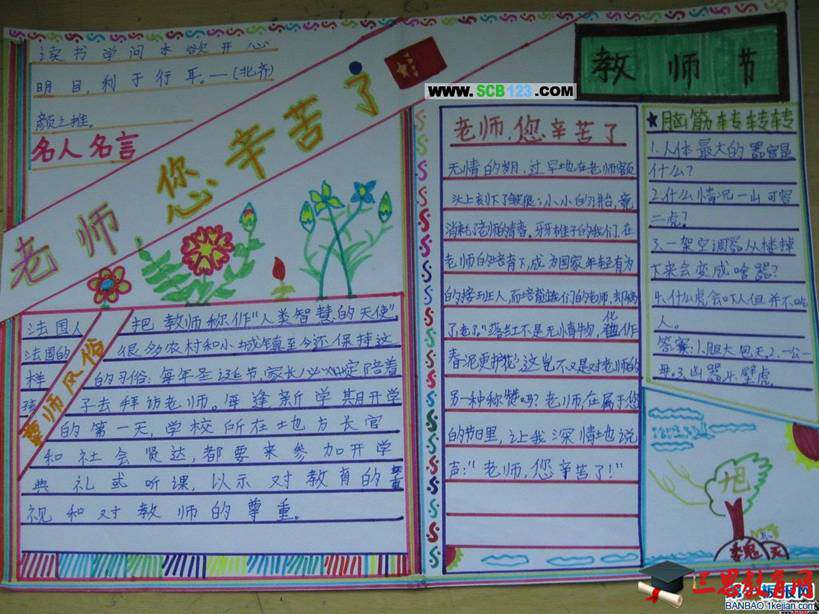 读书学问本欲开心
明目,利于行耳。—(北齐)
颜之推。
名人名言
老师您辛苦了
www.SCB123.com
教师节
法国人把教师称作"人类智慧的天使"
法国的很多农村和小城镇至今还保持这
样的习俗:每年圣诞节,家长必定陪着
孩子去拜访老师。每逢新学期开学
的第一天,学校所在地方长官
和社会贤达,都要来参加开学
典礼或听课,以示对教育的重
视和对教师的尊重。
尊师风俗
老师,您辛苦了
无情的 过早地在老师额
头上刻下了 小小的 竟
消耗 老师的
老师的培育下,成为国家年轻有为
的接班人,而培育我们的老师,却
了 "落红不是无情物,化作
春泥更护花"这岂不又是对老师的
另一种称赞吗?老师,在属于您
的节日里,让我深情地说
声:"老师,您辛苦了!"
★脑筋转转转
1.人体最大的器官是
什么?
2.什么情况一山可容
二虎?
3.一架空调器从楼掉
下来会变成啥器?
4.什么虎会吓人但并不吃
人。
答案:1.胆大包天2.一公一
母.3.凶器4.壁虎
三思教育网
BANBAO.1kejian.com